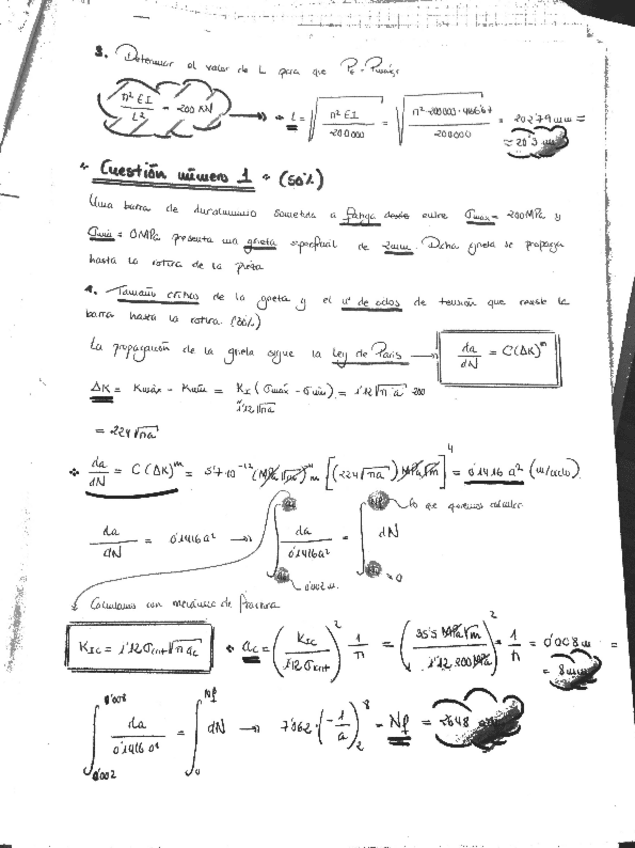 3. Determinar el valor de L para que Pe = Pmáx
π² EI / L² = 200 KN → L = √(π² EI / 200000) = √(π² 200000 · 41666'67 / 200000) = 20279 mm =
≈ 20'3 m
* Cuestión número 1 * (50%)
Una barra de duraluminio sometida a fatiga desde entre σmax = 200MPa y
σmin = 0MPa presenta una grieta superficial de 2mm. Dicha grieta se propaga
hasta la rotura de la pieza
1. Tamaño crítico de la grieta y el nº de ciclos de tensión que resiste la
barra hasta la rotura. (30%)
La propagación de la grieta sigue la Ley de Paris → da/dN = C(ΔK)^m
ΔK = Kmáx - Kmín = KI (σmáx - σmín) = 1'12√πa 200
1'12√πa
= 224√πa
* da/dN = C(ΔK)^m = 5'7·10^-12 (MPa√m)^-4 m [(224√πa) MPa√m]^4 = 0'1416 a² (m/ciclo)
lo que queremos calcular
da/dN = 0'1416a² → ∫ da/0'1416a² = ∫ dN
0'002 m.
Calculamos con mecánica de fractura
KIC = 1'12 σcrit √π ac * ac = (KIC / 1'12 σcrit)² 1/π = (35'5 MPa√m / 1'12 200MPa)² · 1/π = 0'008 m =
= 8mm
∫0'002^0'008 da/0'1416 a² = ∫0^Nf dN → 7'062 · (-1/a)₂⁸ = Nf = 2648